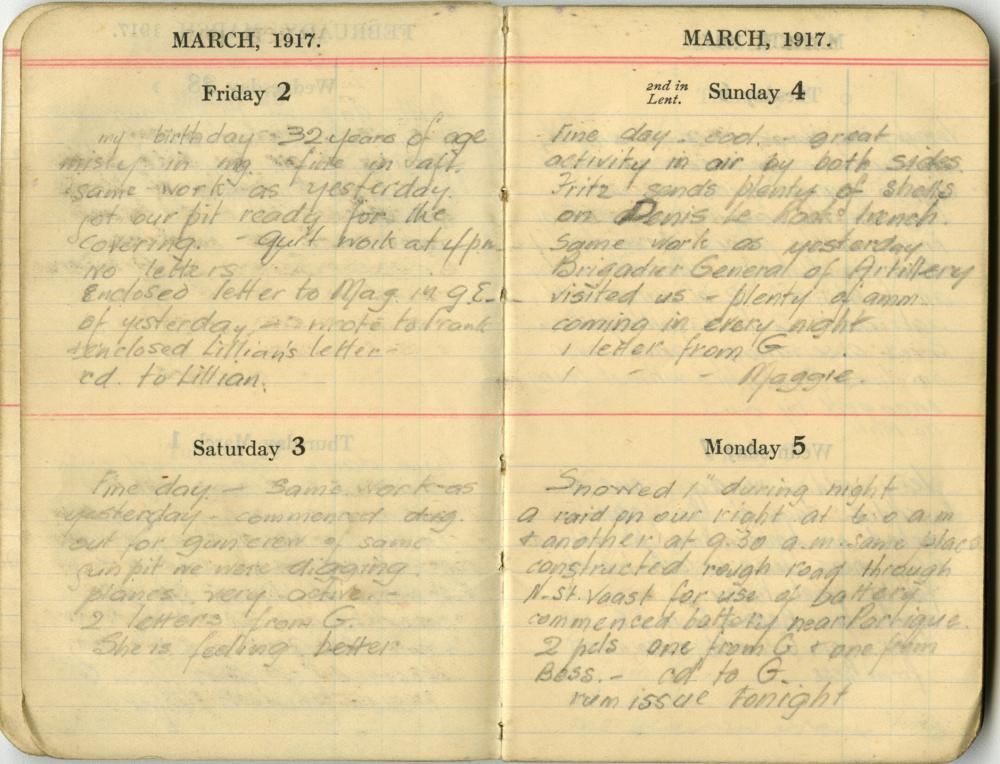 MARCH, 1917.
Friday 2
my birthday - 32 years of age
misty in mg. - fine in aft.
same work as yesterday.
got our pit ready for the
covering. - quit work at 4 pm.
no letters
Enclosed letter to Mag. in G's
of yesterday - wrote to Frank
& enclosed Lillian's letter -
cd. to Lillian.
Saturday 3
Fine day - same work as
yesterday - commenced dug.
out for gun crew of same
gun pit we were digging
planes very active. -
2 letters from G.
She is feeling better
MARCH, 1917.
2nd in Lent. Sunday 4
Fine day - cool - great
activity in air by both sides.
Fritz sends plenty of shells
on Denis le trench.
Same work as yesterday
Brigadier General of Artillery
visited us - plenty of amm
coming in every night
1 letter from G.
1 - - Maggie.
Monday 5
Snowed 1" during night
a raid on our right at 6 a m
& another at 9.30 a.m. same place
constructed rough road through
N. St. Vaast for use of battery
commenced battery near
2 pcls one from G. & one from
Bess. - cd to G.
rum issue tonight